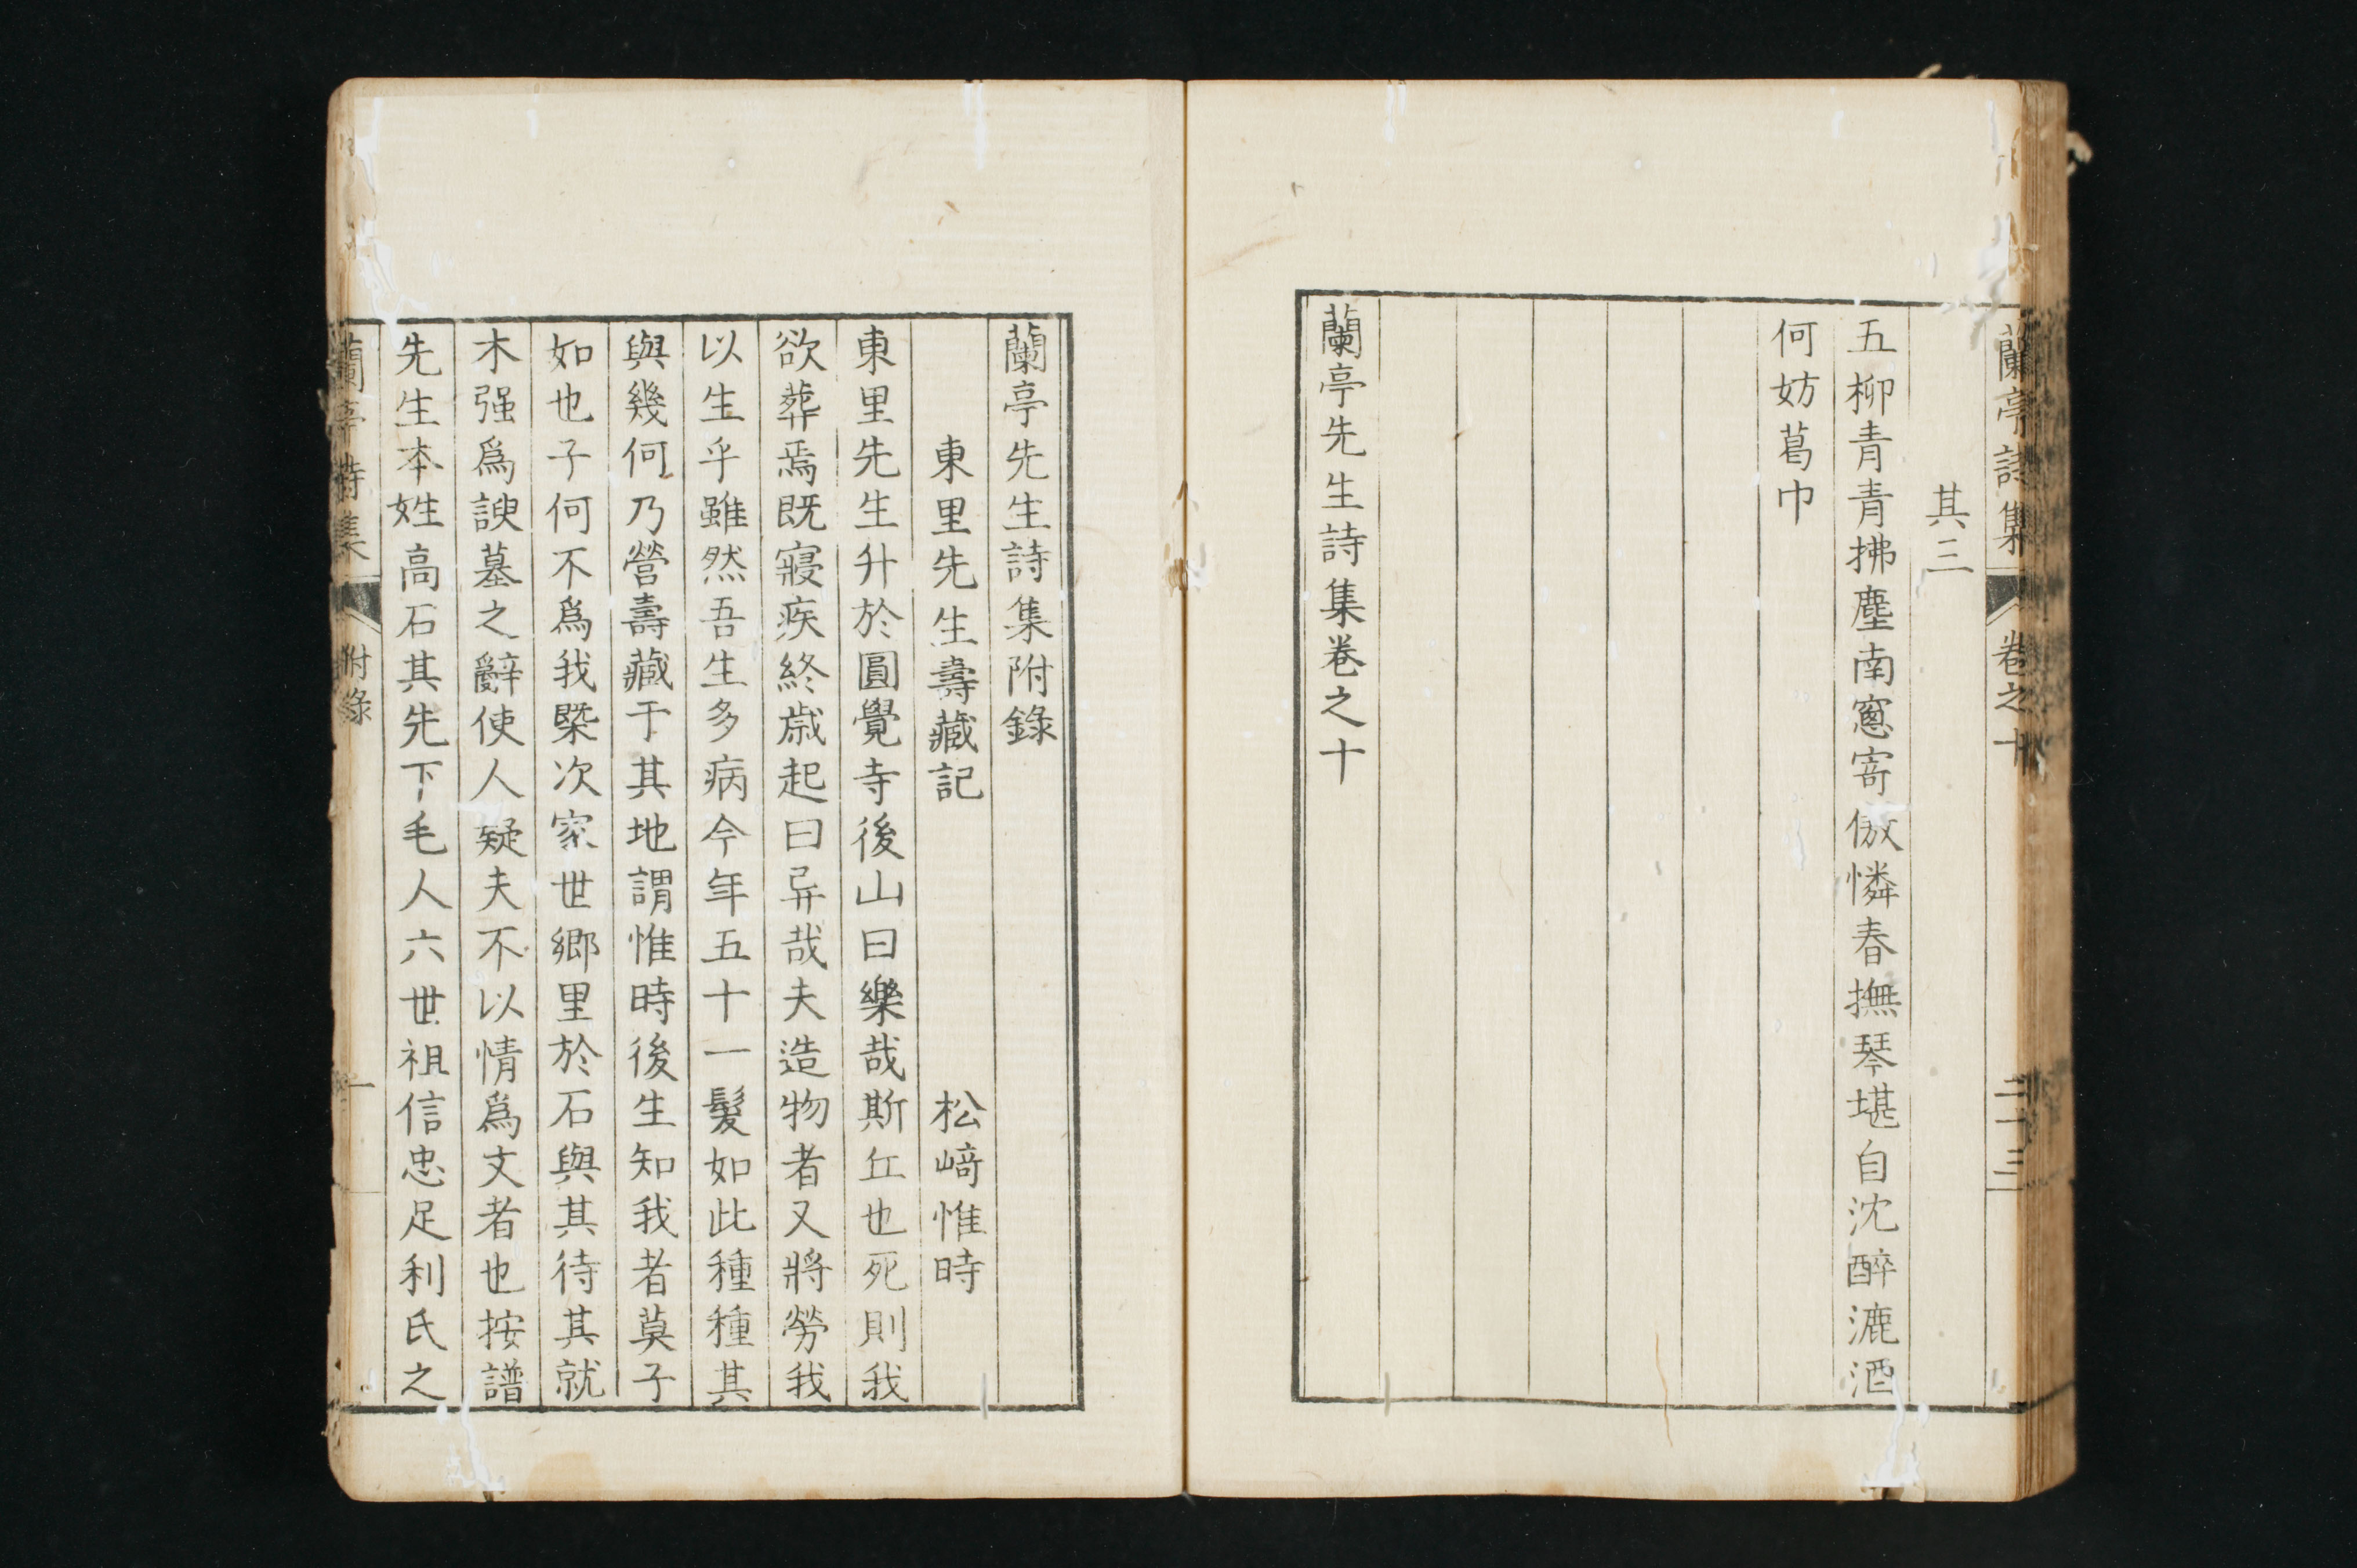 蘭亭詩集 卷之十 二十三
其三
五柳青青拂塵南窻寄傲憐春撫琴堪自沈醉漉酒
何妨葛巾
蘭亭先生詩集卷之十
蘭亭先生詩集附錄
東里先生壽藏記
松﨑惟時
東里先生升於圓覺寺後山曰樂哉斯丘也死則我
欲葬焉既寢疾終歳起曰异哉夫造物者又將勞我
以生乎雖然吾生多病今年五十一髮如此種種其
與幾何乃營壽藏于其地謂惟時後生知我者莫子
如也子何不爲我槩次家世鄉里於石與其待其就
木强爲諛墓之辭使人疑夫不以情爲文者也按譜
先生本姓高石其先下毛人六世祖信忠足利氏之
蘭亭詩集 附錄 一